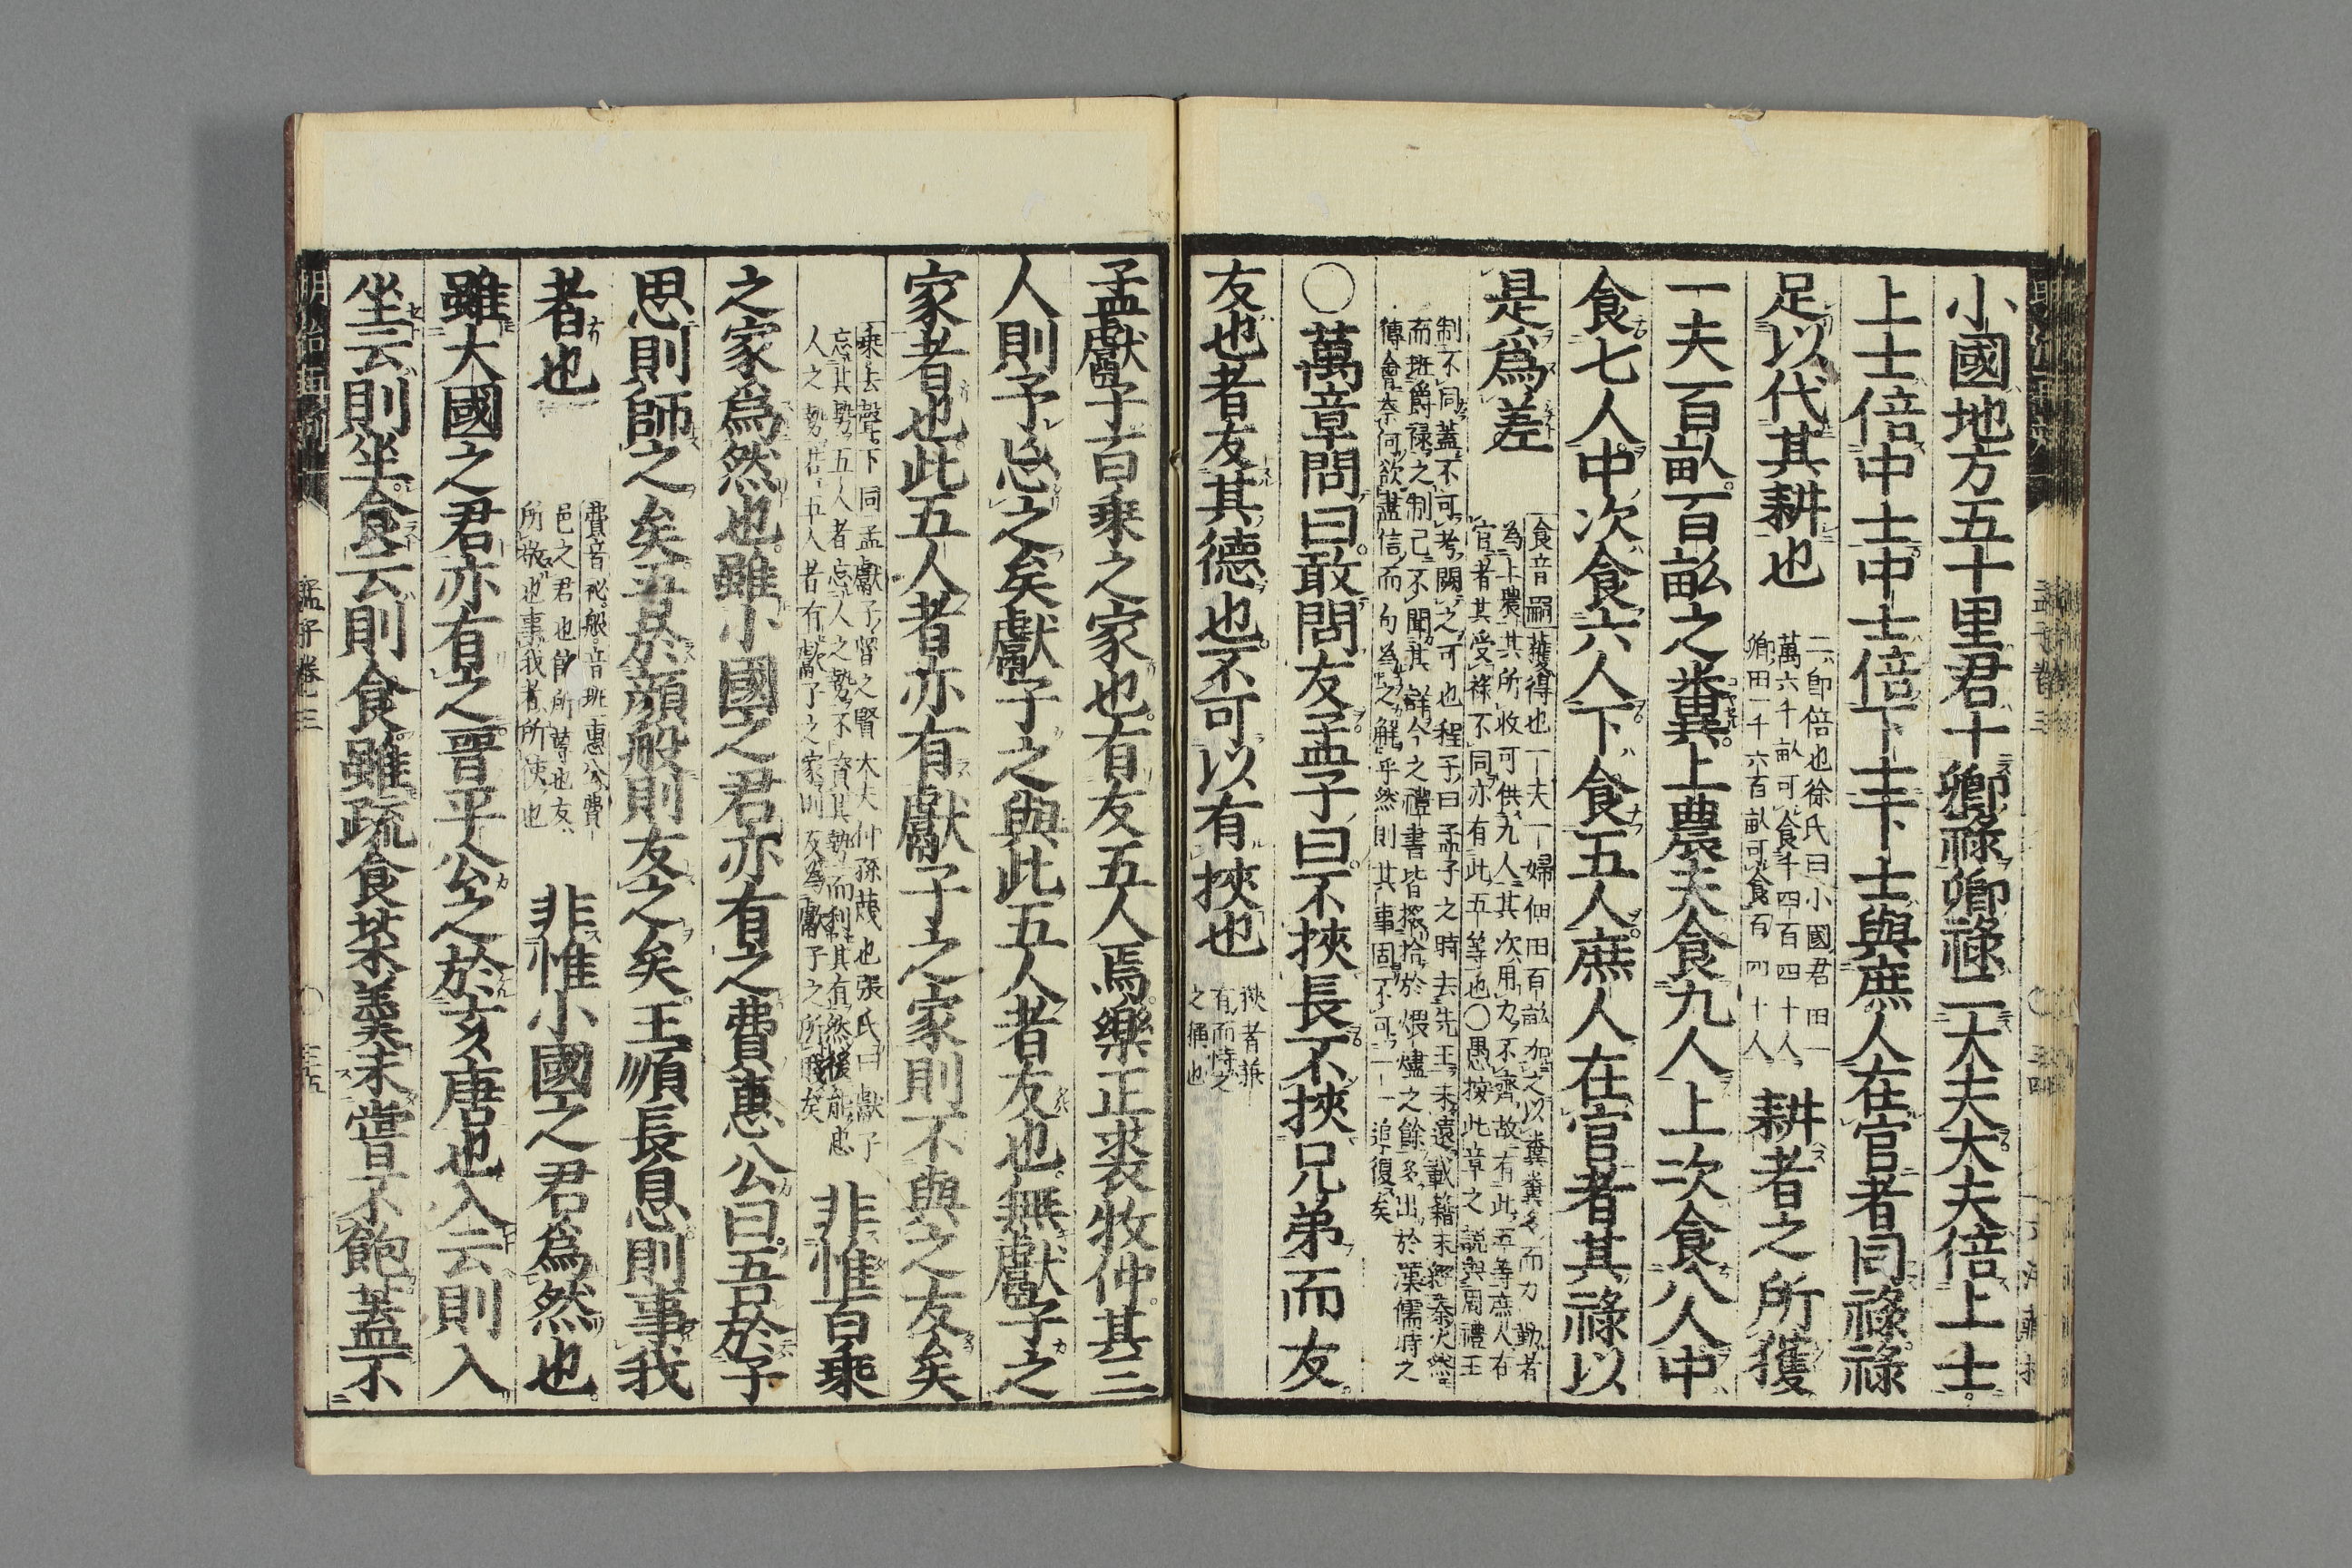 小國地方五十里君十卿祿卿祿二大夫大夫倍上士
上士倍中士中士倍下士下士與庶人在官者同祿祿
足以代其耕也
二即倍也徐氏曰小國君田一
萬六千畝可食千四百四十人
卿田一千六百畝可食百四十人
耕者之所獲
一夫百畝百畝之糞上農夫食九人上次食八人中
食七人中次食六人下食五人庶人在官者其祿以
是爲差
食音嗣獲得也一夫一婦佃田百畝加之以糞糞多而力勤者
為上農其所收可供九人其次用力不齊故有此五等庶人在
官者其受祿不同亦有此五等也○愚按此章之説與周禮王
制不同蓋不可考闕之可也程子曰孟子之時去先王未遠載籍未經秦火然
而班爵祿之制已不聞其詳今之禮書皆掇拾於煨燼之餘多出於漢儒一時之
傅會奈何欲盡信而句為之解乎然則其事固不可一一追復矣
○萬章問曰敢問友孟子曰不挾長不挾兄弟而友
友也者友其德也不可以有挾也
挾者兼
有而恃之
之稱也
孟獻子百乘之家也有友五人焉樂正裘牧仲其三
人則予忘之矣獻子之與此五人者友也無獻子之
家者也此五人者亦有獻子之家則不與之友矣
乘去聲下同孟獻子魯之賢大夫仲孫蔑也張氏曰獻子
忘其勢五人者忘人之勢不資其勢而利其有然後能忘
人之勢若五人者有獻子之家則反為獻子之所賤矣
非惟百乘
之家爲然也雖小國之君亦有之費惠公曰吾於子
思則師之矣吾於顔般則友之矣王順長息則事我
者也
費音祕般音班惠公費
邑之君也師所尊也友
所敬也事我者所使也
非惟小國之君爲然也
雖大國之君亦有之晉平公之於亥唐也入云則入
坐云則坐食云則食雖疏食菜羹未嘗不飽蓋不
孟子卷三
三五